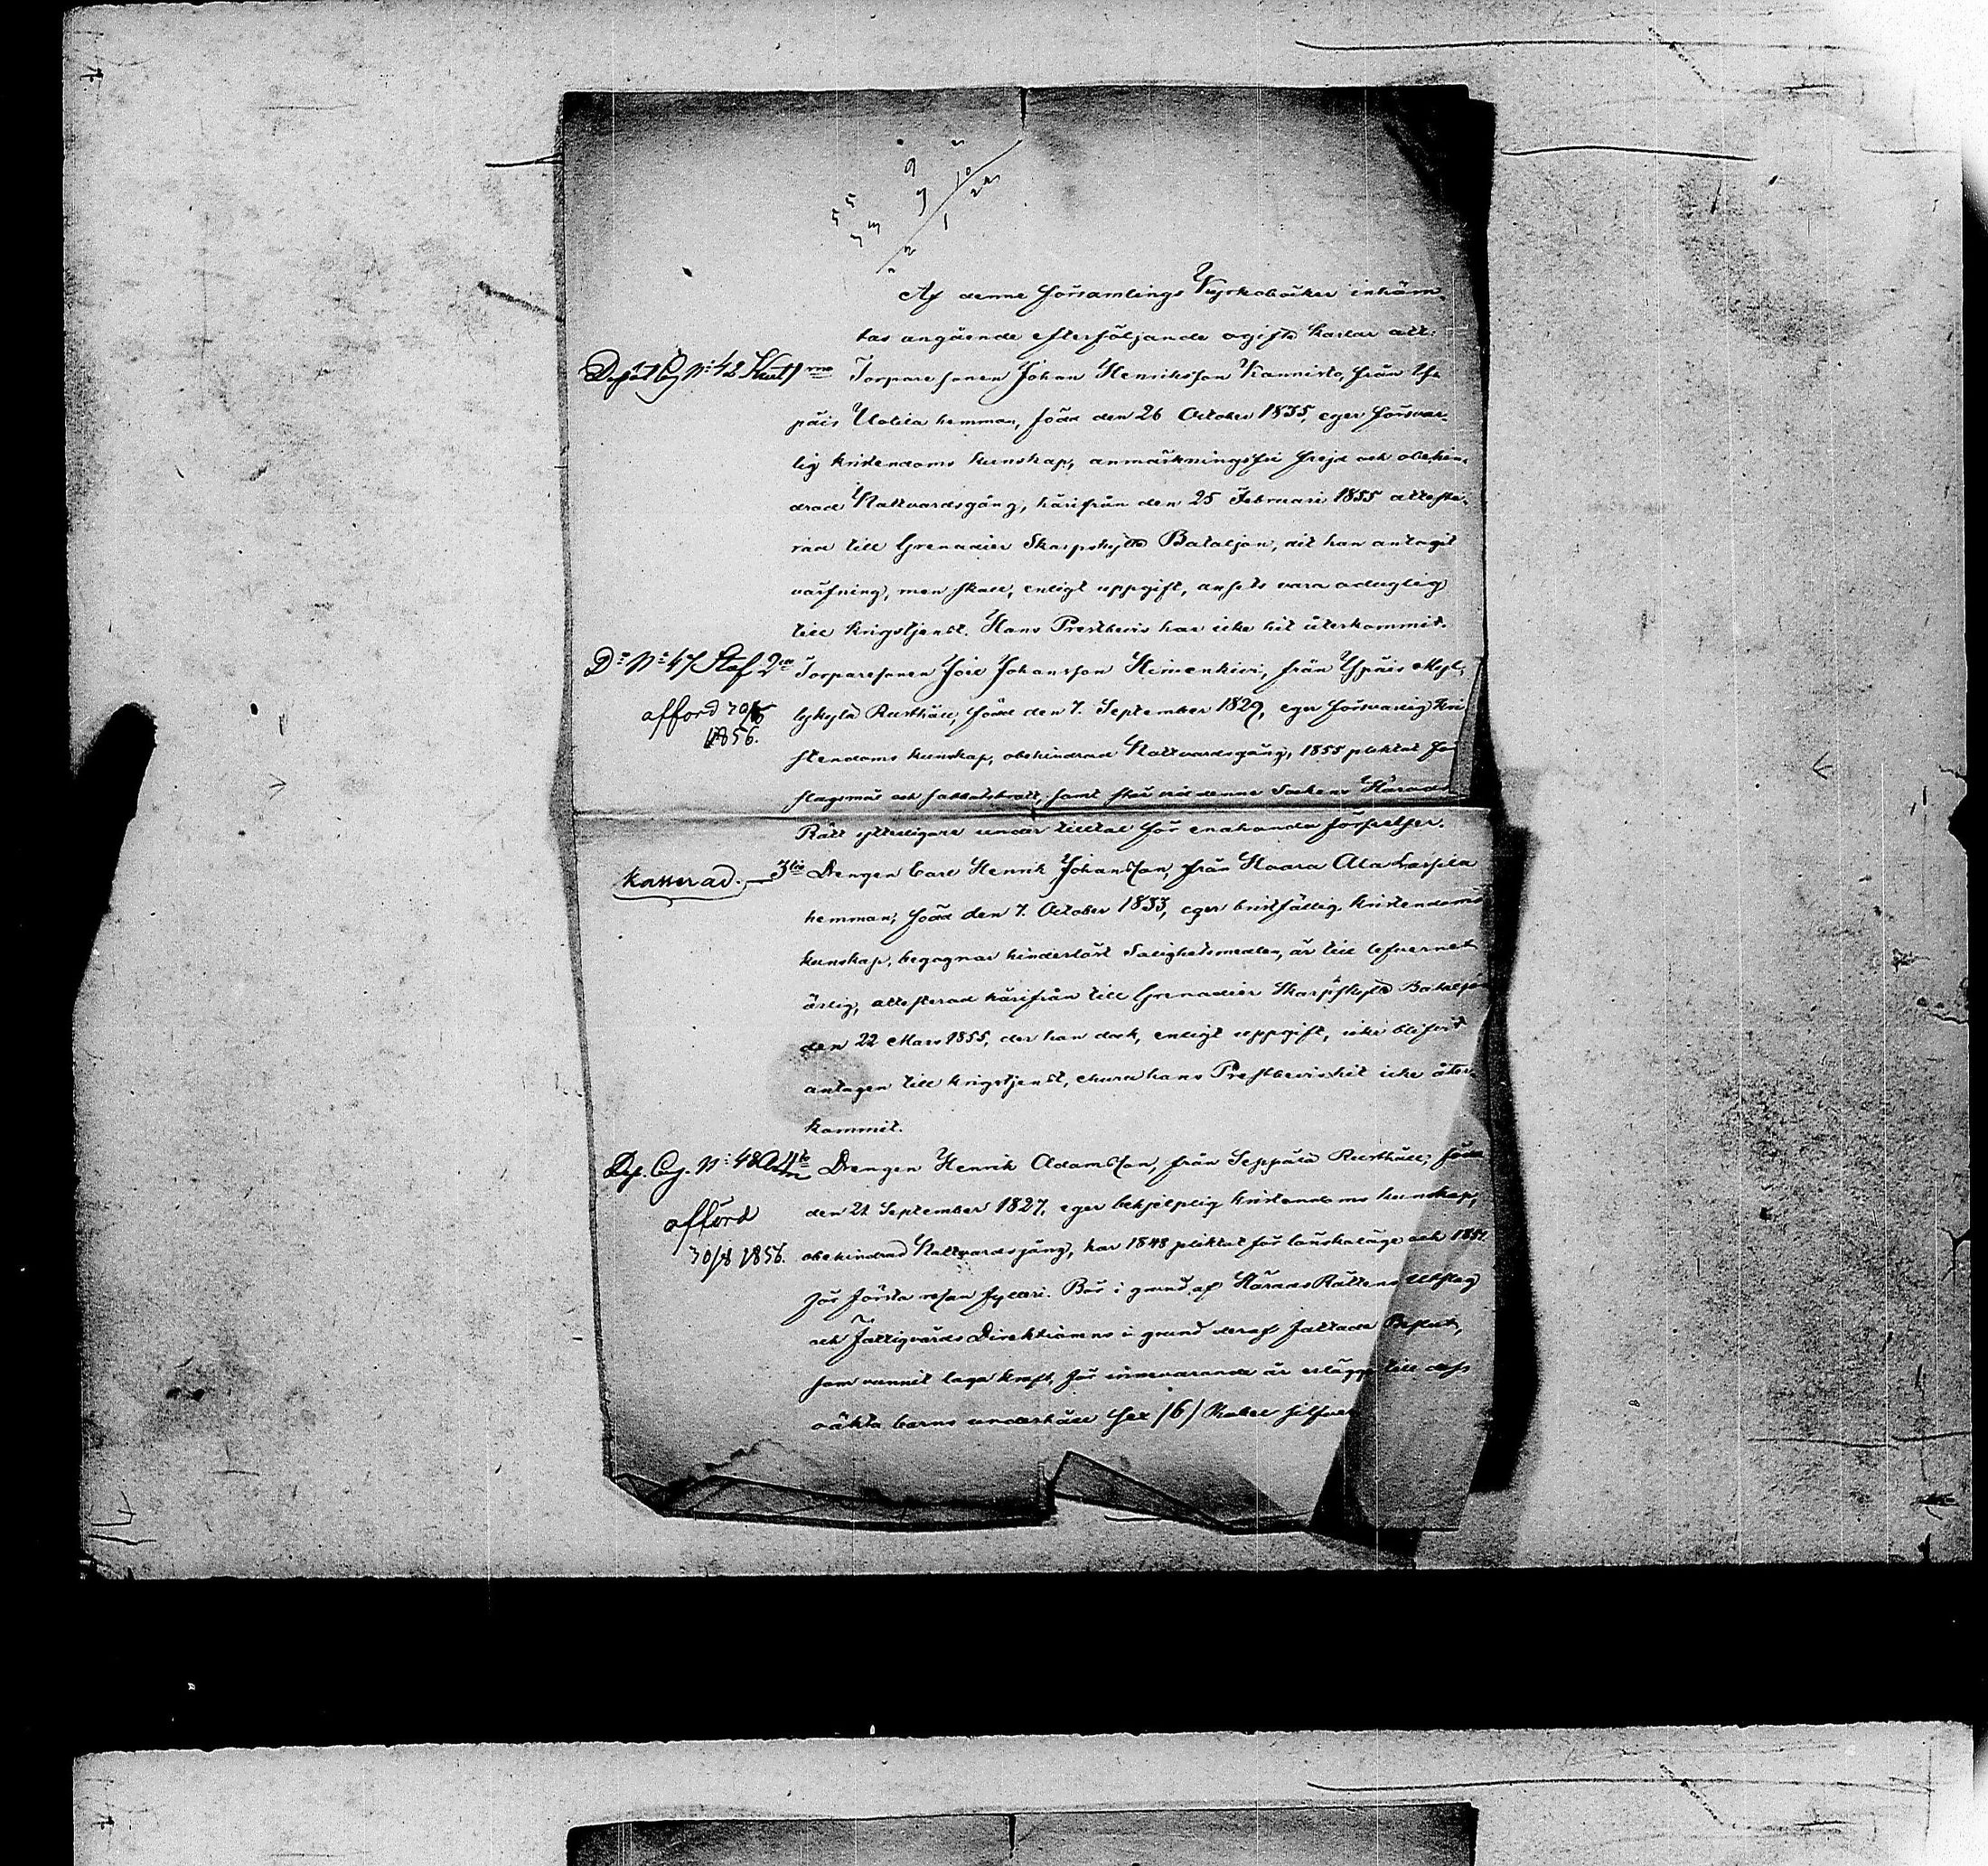 Af denne Församlings Kyrkoböcker inhäm-
tas angående efterföljande ogifta Karlar att:
Depôt Cg Nº 42 1mo Torparesonen Johan Henriksson Kannisto, från Yp-
päis Uotila hemman, född den 26 October 1835, eger försvar-
lig kristendoms kunskap, anmärkningsfri frejd och obehin-
drad Nattvardsgång, härifrån den 25 Februari 1855 atteste-
rad till Grenadier Skarpskytte Bataljon, dit han antagit
värfning, men skall, enligt uppgift, ansets vara oduglig
till krigstjenst. Hans Prestbevis har icke hit återkommit.
Dº Nº 47 Staf 2do Torparesonen Joel Johansson Heinenkivi, från Ypäis Myl-
lykylä Rusthåll, född den 7. September 1829, eger försvarlig Kri-
afförd 30/
1856.
stendoms kunskap, obehindrad Nattvardsgång, 1855 pliktat för
slagsmål och sabbatsbrott, samt står vid denne Sockens Härads
Rätt ytterligare under tilltal för enahanda förseelser.
Kasserad. 3tio Drengen Carl Henrik Johansson, från Haara Ala
hemman; född den 7. October 1833, eger bristfällig kristendoms
kunskap, begagnar hinderlöst Salighetsmedlen, är till lefvernet
ärlig, attesterad härifrån till Grenadier Skarpskytte Bataljon
den 22 Mars 1855, der han dock, enligt uppgift, icke blifvit
antagen till krigstjenst, ehuru hans Prestbevis hit icke åter-
kommit.
Dep. Cg. Nº 48 4to Drengen Henrik Adamsson, från Seppälä Rusthåll; född
den 21 September 1827, eger behjelplig kristendoms kunskap,
afförd
30/8 1856.
obehindrad Nattvardsgång, har 1848 pliktat för lönskaläge och 1854
för första resan fylleri. Bör i grund af Härads Rättens Utslag
och Fattigvårds Direktionens i grund deraf fattade Beslut,
som vunnit laga kraft, för innevarande år erlägga till dess
oäkta barns underhåll sex /6/ Rubel silfver